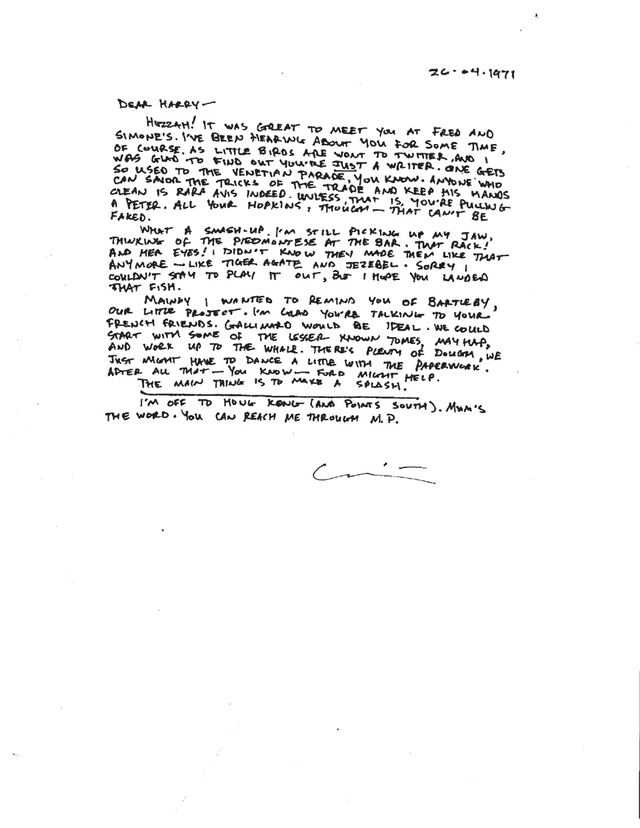 26.04.1971
DEAR HARRY—
HUZZAH! IT WAS GREAT TO MEET YOU AT FRED AND
SIMONE'S. I'VE BEEN HEARING ABOUT YOU FOR SOME TIME,
OF COURSE, AS LITTLE BIRDS ARE WONT TO TWITTER, AND I
WAS GLAD TO FIND OUT YOU'RE JUST A WRITER. ONE GETS
SO USED TO THE VENETIAN PARADE, YOU KNOW. ANYONE WHO
CAN SAVOR THE TRICKS OF THE TRADE AND KEEP HIS HANDS
CLEAN IS RARA AVIS INDEED. UNLESS, THAT IS, YOU'RE PULLING
A PETER. ALL YOUR HOPKINS, THOUGH — THAT CAN'T BE
FAKED.
WHAT A SMASH-UP. I'M STILL PICKING UP MY JAW,
THINKING OF THE PIEDMONTESE AT THE BAR. THAT RACK!
AND HER EYES! I DIDN'T KNOW THEY MADE THEM LIKE THAT
ANYMORE — LIKE TIGER AGATE AND JEZEBEL. SORRY I
COULDN'T STAY TO PLAY IT OUT, BUT I HOPE YOU LANDED
THAT FISH.
MAINLY I WANTED TO REMIND YOU OF BARTLEBY,
OUR LITTLE PROJECT. I'M GLAD YOU'RE TALKING TO YOUR
FRENCH FRIENDS. GALLIMARD WOULD BE IDEAL. WE COULD
START WITH SOME OF THE LESSER KNOWN TOMES, MAYHAP,
AND WORK UP TO THE WHALE. THERE'S PLENTY OF DOUGH, WE
JUST MIGHT HAVE TO DANCE A LITTLE WITH THE PAPERWORK.
AFTER ALL THAT — YOU KNOW — FORD MIGHT HELP.
THE MAIN THING IS TO MAKE A SPLASH.
I'M OFF TO HONG KONG (AND POINTS SOUTH). MUM'S
THE WORD. YOU CAN REACH ME THROUGH M.P.